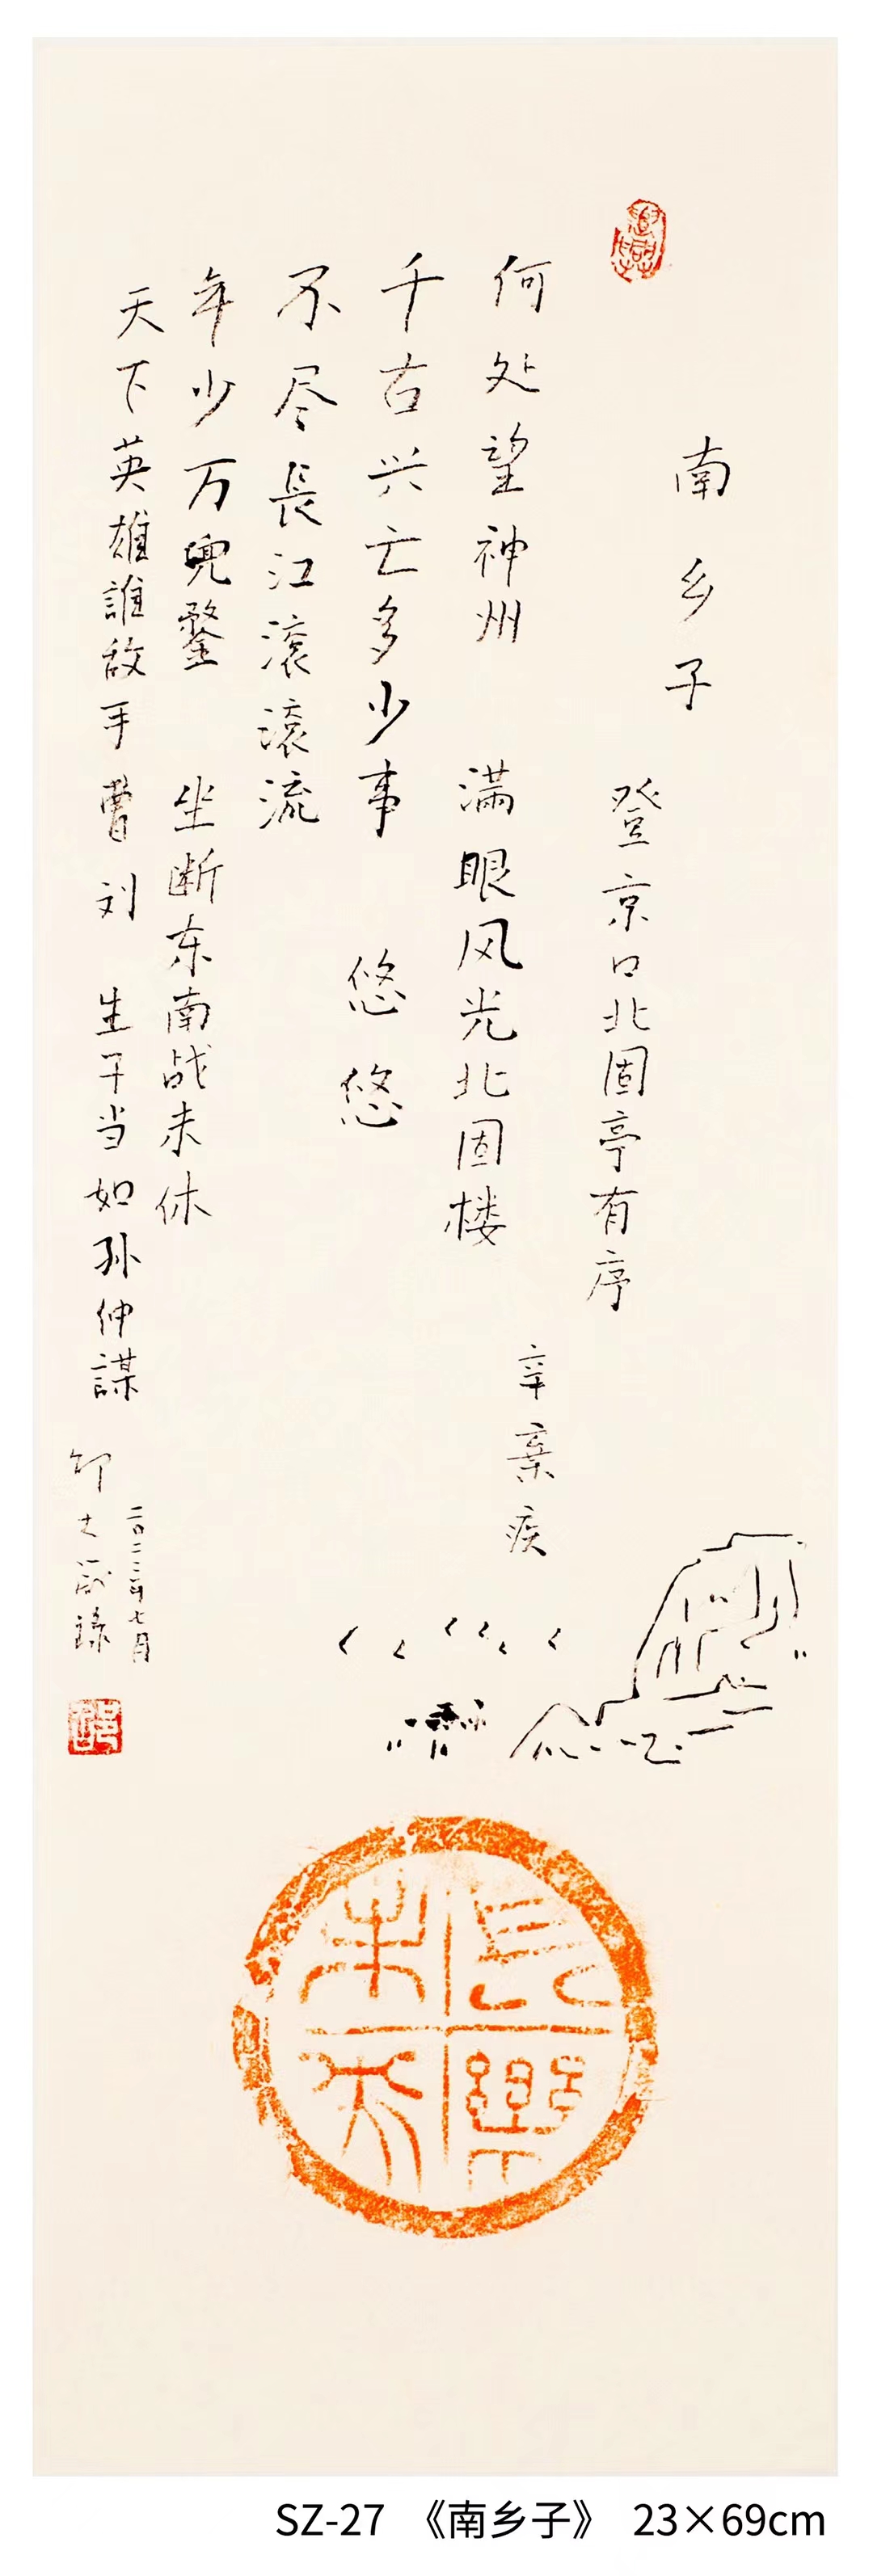 南乡子
登京口北固亭有序
辛棄疾
何处望神州 满眼风光北固楼
千古兴亡多少事 悠悠
不尽長江滚滚流
年少万兜鍪 坐断东南战未休
天下英雄誰敌手曹刘 生子当如孙仲謀
二〇二三年七月
錄
長樂未央
SZ-27 《南乡子》 23×69cm